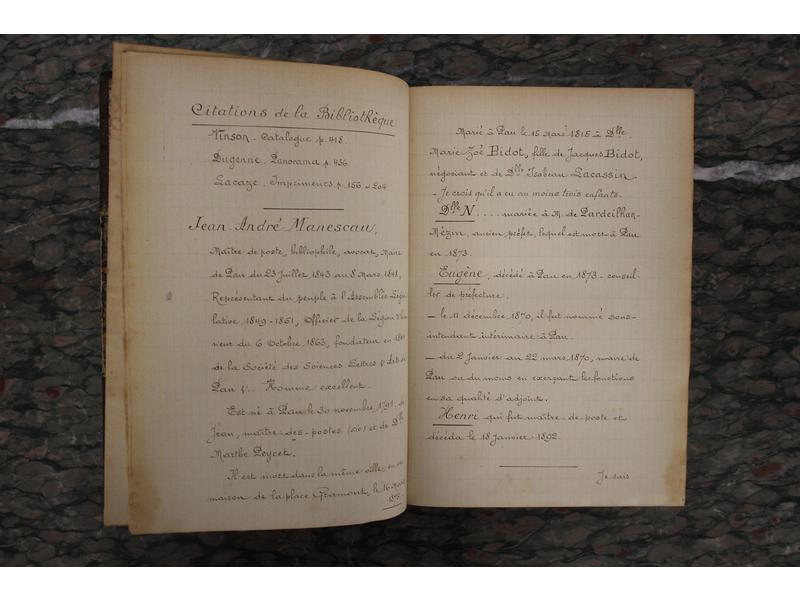 Citations de la Bibliothèque
Vinson. Catalogue p. 418.
Dugenne. Panorama p. 456.
Lacaze. Imprimeurs p. 156 et 204
Jean-André Manescau,
Maître de poste, bibliophile, avocat, Maire
de Pau du 23 Juillet 1843 au 8 Mars
Représentant du peuple à l'Assemblée Légis-
lative 1849-1851, Officier de la Légion d'hon
neur du 6 Octobre 1863, fondateur en
de la Société des Sciences Lettres & Arts de
Pau Homme excellent.
Est né à Pau le 30 novembre 1791, de
Jean, maître-des-postes (sic) et de Dlle
Marthe Peycet.
Il est mort dans la même ville, en sa
maison de la place Gramont, le 16
Marié à Pau le 15 Mars 1815 à Dlle
Marie Zoé Bidot, fille de Jacques Bidot,
négociant et de Dlle Isabeau Lacassin.
- Je crois qu'il a eu au moins trois enfants.
Dlle N.... mariée à M. de Pardeilhan-
Mézin, ancien préfet, lequel est mort à Pau
en 1873.
Eugène, décédé à Pau en 1873 - conseil-
ler de préfecture.
- le 11 décembre 1870, il fut nommé sous-
intendant intérimaire à Pau.
- du 2 Janvier au 22 mars 1870, maire de
Pau ou du moins en exerçant les fonctions
en sa qualité d'adjoint.
Henri qui fut maître-de-poste et
décéda le 18 Janvier 1892.
Je sais